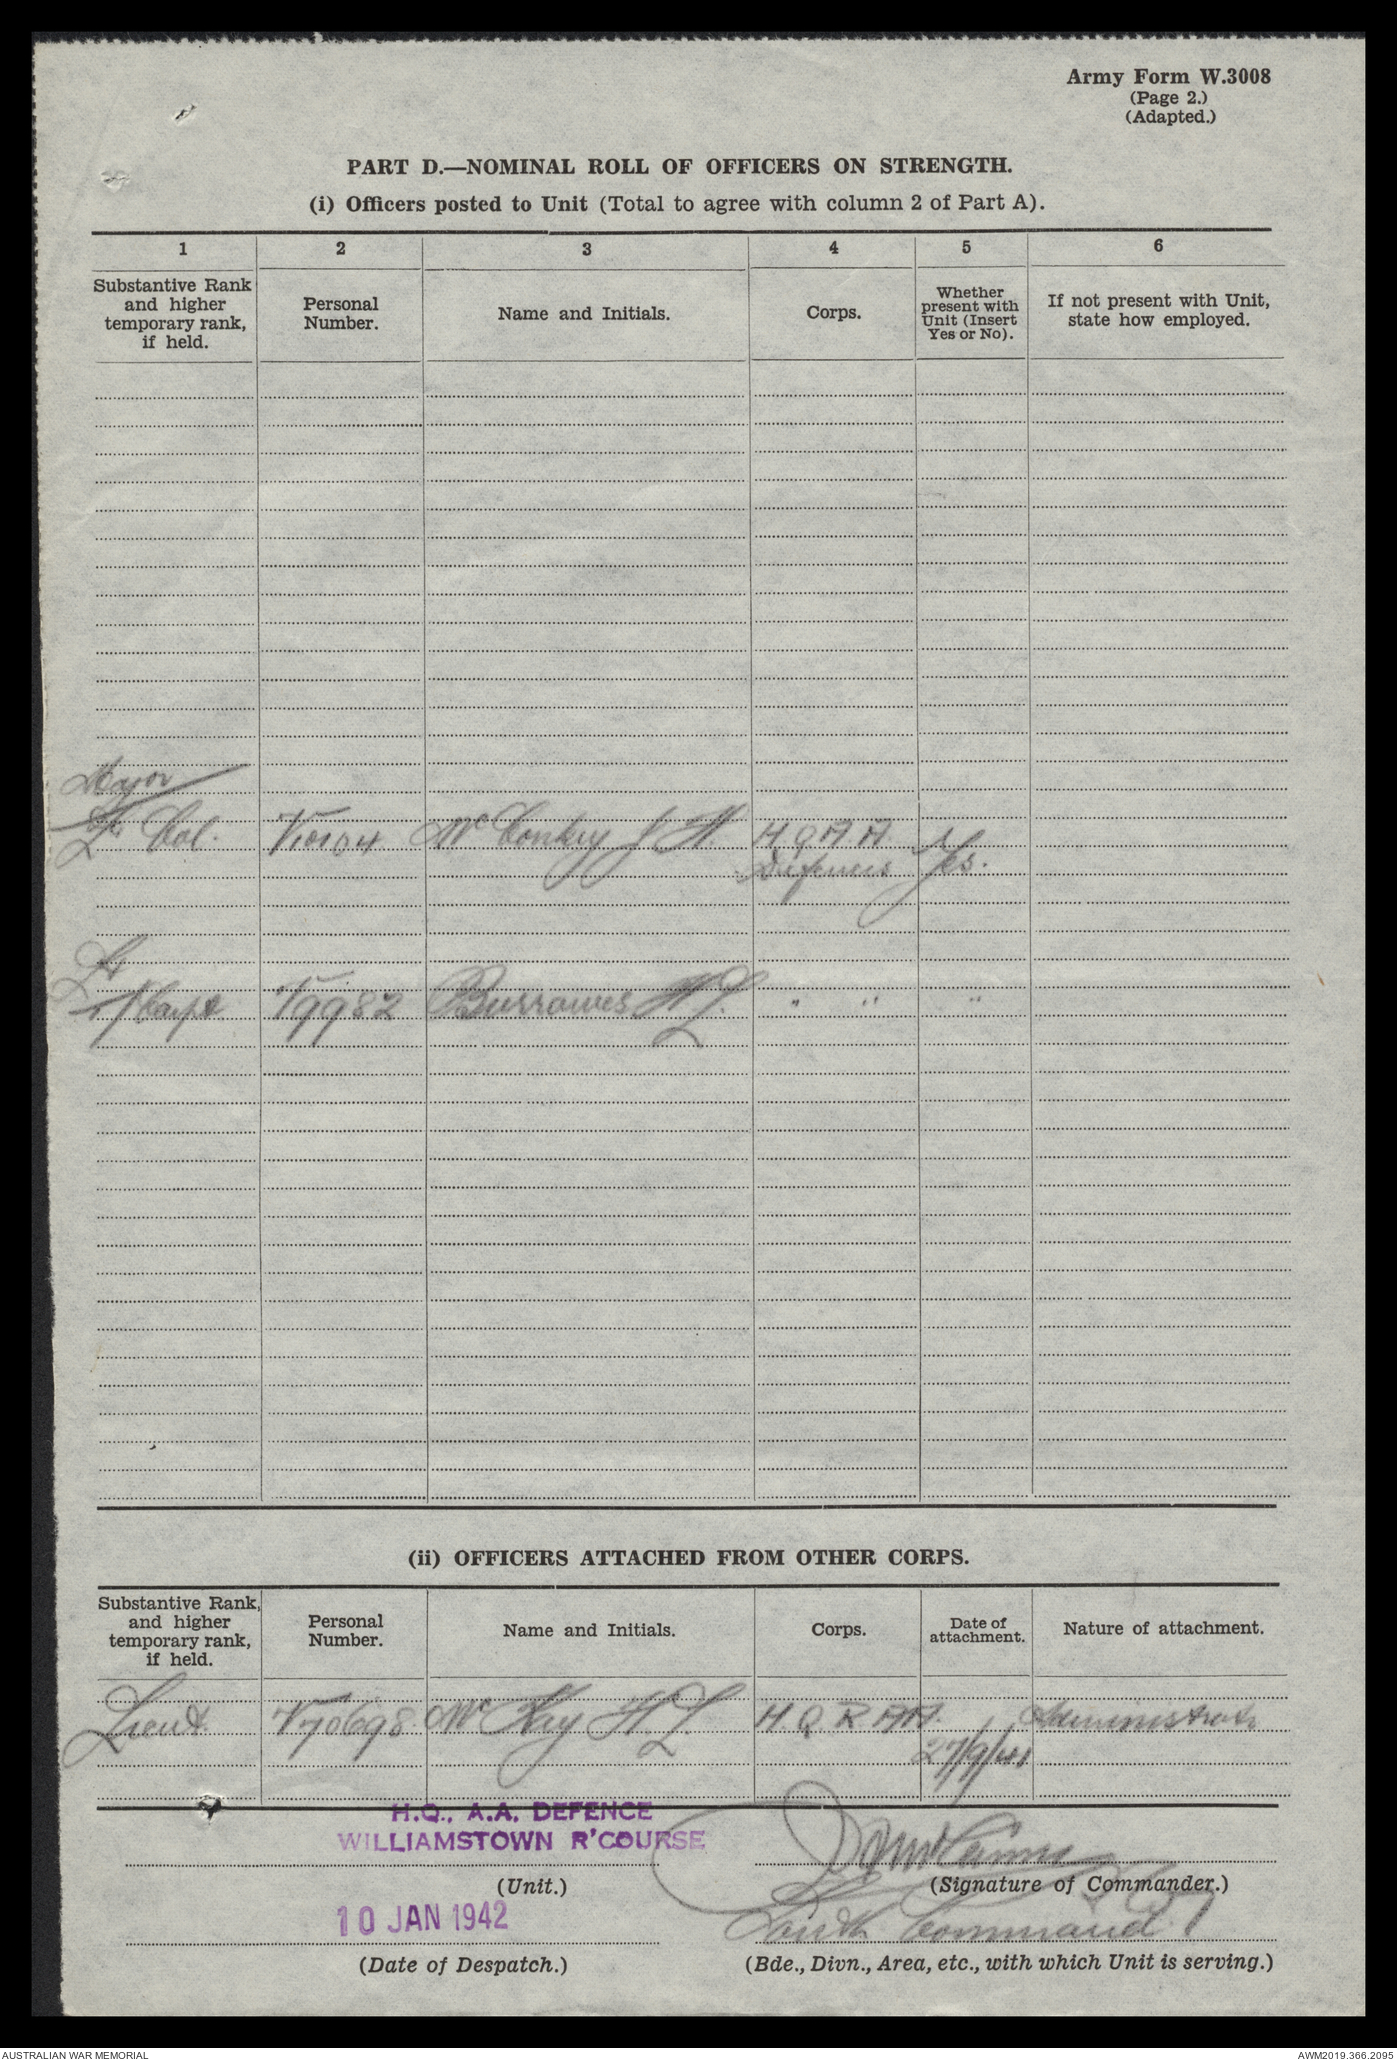 Army Form W.3008
(Page 2.)
(Adapted.)
PART D.—NOMINAL ROLL OF OFFICERS ON STRENGTH.
(i) Officers posted to Unit (Total to agree with column 2 of Part A).
1 2 3 4 5 6
Substantive Rank and higher temporary rank, if held. Personal Number. Name and Initials. Corps. Whether present with Unit (Insert Yes or No). If not present with Unit, state how employed.
Major
Lt Col. V10104 McConkey J H. H.Q A.A.
Defences Yes.
Lt
T/Capt V9982 Burrowes H L. " " "
(ii) OFFICERS ATTACHED FROM OTHER CORPS.
Substantive Rank, and higher temporary rank, if held. Personal Number. Name and Initials. Corps. Date of attachment. Nature of attachment.
Lieut. V70698 McKay H. L. H. Q R AA.
27/9/41
H.Q., A.A. DEFENCE
WILLIAMSTOWN R'COURSE
(Unit.) (Signature of Commander.)
10 JAN 1942 South Command
(Date of Despatch.) (Bde., Divn., Area, etc., with which Unit is serving.)
AUSTRALIAN WAR MEMORIAL AWM2019.366.2095